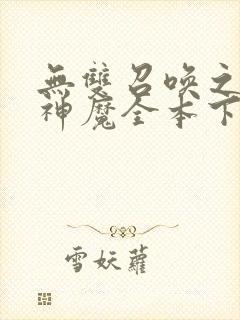 無雙召喚之
神魔全本下
雪妖蘿